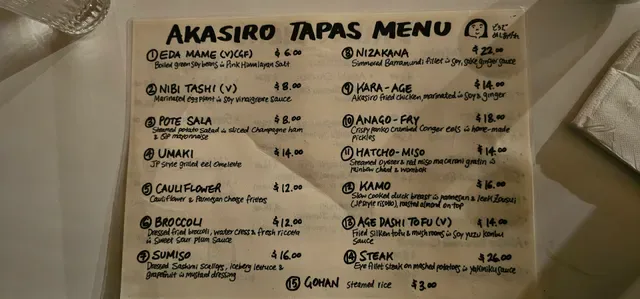 AKASIRO TAPAS MENU
① EDA MAME (V)(GF) $ 6.00
Boiled green soy beans in Pink Himalayan Salt
② NIBI TASHI (V) $ 8.00
Marinated egg plant in soy vinaigrette sauce
③ POTE SALA $ 8.00
Steamed potato salad in sliced Champagne ham
& JP mayonnaise
④ UMAKI $ 14.00
JP style grilled eel Omelette
⑤ CAULIFLOWER $ 12.00
Cauliflower & Parmesan cheese fritters
⑥ BROCCOLI $ 12.00
Dressed fried broccoli, water cress & fresh ricotta
in Sweet Sour Plum Sauce
⑦ SUMISO $ 16.00
Dressed Sashimi Scallops, iceberg lettuce &
grapefruit in mustard dressing
⑧ NIZAKANA $ 22.00
Simmered Barramundi fillet in soy, sake ginger sauce
⑨ KARA-AGE $ 14.00
Akasiro fried chicken marinated in soy & ginger
⑩ ANAGO-FRY $ 18.00
Crispy panko crumbed Conger eels in home-made
pickles
⑪ HATCHO-MISO $ 14.00
Steamed oyster & red miso macaroni gratin in
rainbow chard & wombok
⑫ KAMO $ 16.00
Slow cooked duck breast in parmesan & leek Zousui
(JP style risotto), roasted almond on top
⑬ AGE DASHI TOFU (V) $ 14.00
Fried silken tofu & mushrooms in soy yuzu kombu
sauce
⑭ STEAK $ 26.00
Eye fillet steak on mashed potatoes in yakiniku sauce
⑮ GOHAN steamed rice $ 3.00